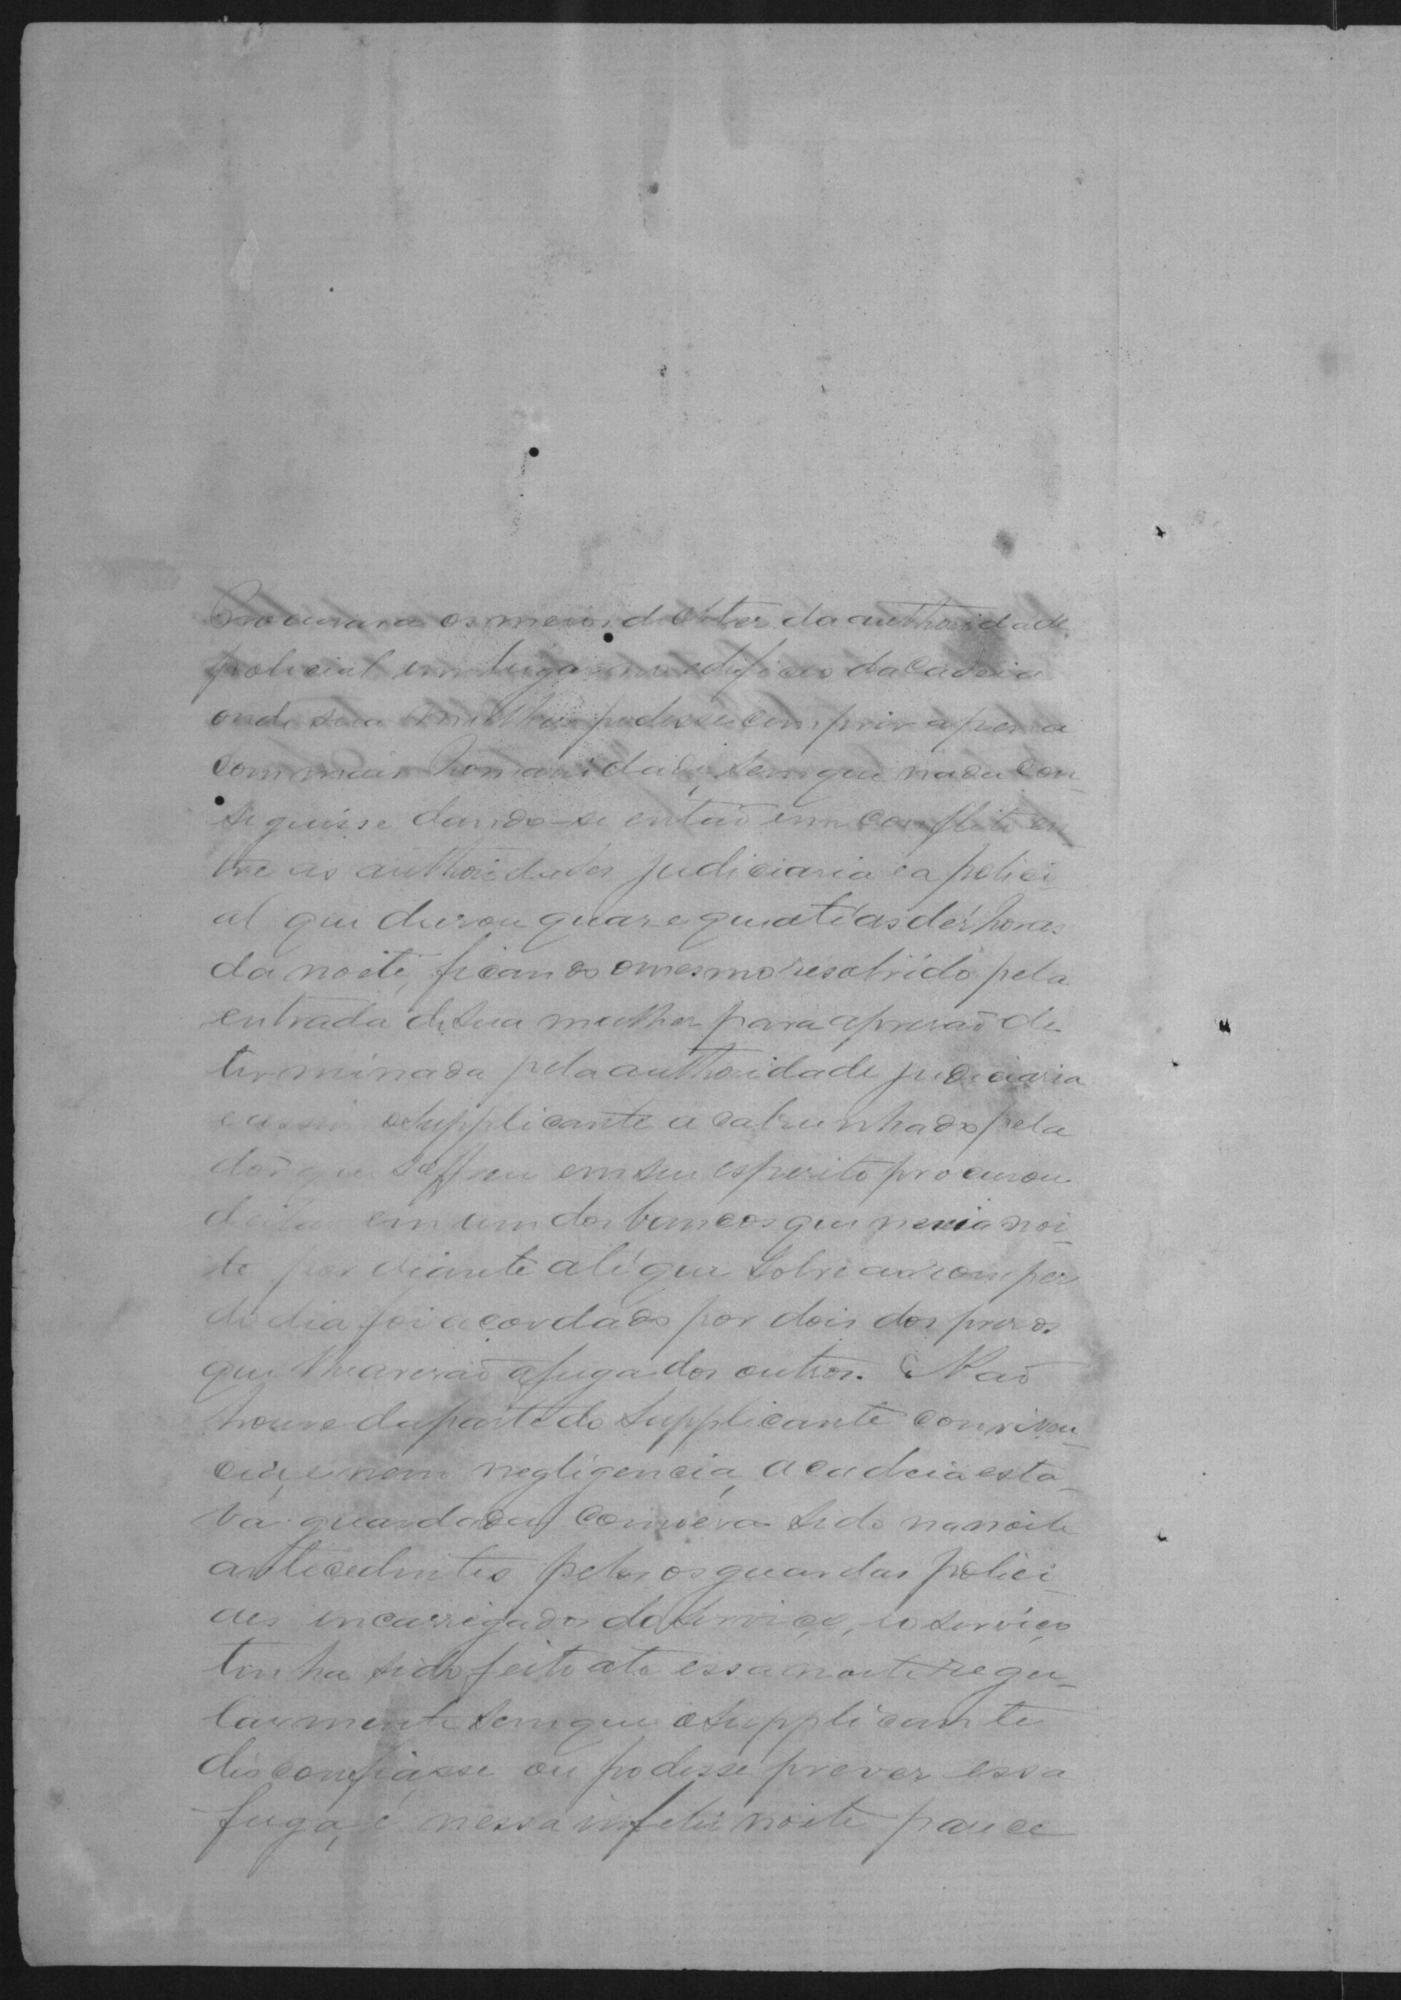 Procurara os meios de obter da authoridade
policial um lugar no edificio da Cadeia
onde sua mulher podesse comprir a pena
com mais homanidade, sem que nada con-
siguisse dando-se então um conflito en
tre as authoridades judiciaria e a polici-
al que durou quaze quiatí as dés horas
da noite, ficando o mesmo resolvido pela
entrada de sua mulher para a prisaõ de
terminada pela authoridade judiciaria
e assim o Supplicante acabrunhado pela
dôr que soffreu em seu esperito procurou
deitar em um dos bancos que meeia noi-
te por diante atí que sobre ao romper
do dia foi acordado por dois dos prezos
que lhe aversaõ a fuga dos outros. Naõ
houve da parte do Supplicante conniven-
cia, e nem negligencia, a cadeia esta-
va guardada como era sido na noite
antecedentes pelos os guardas polici-
aes encarregados do serviço, e o serviço
tinha sido feito até essa noite regu-
larmente sem que o Supplicante
disconfiasse ou podesse prever essa
fuga, é nessa infeliz noite parece